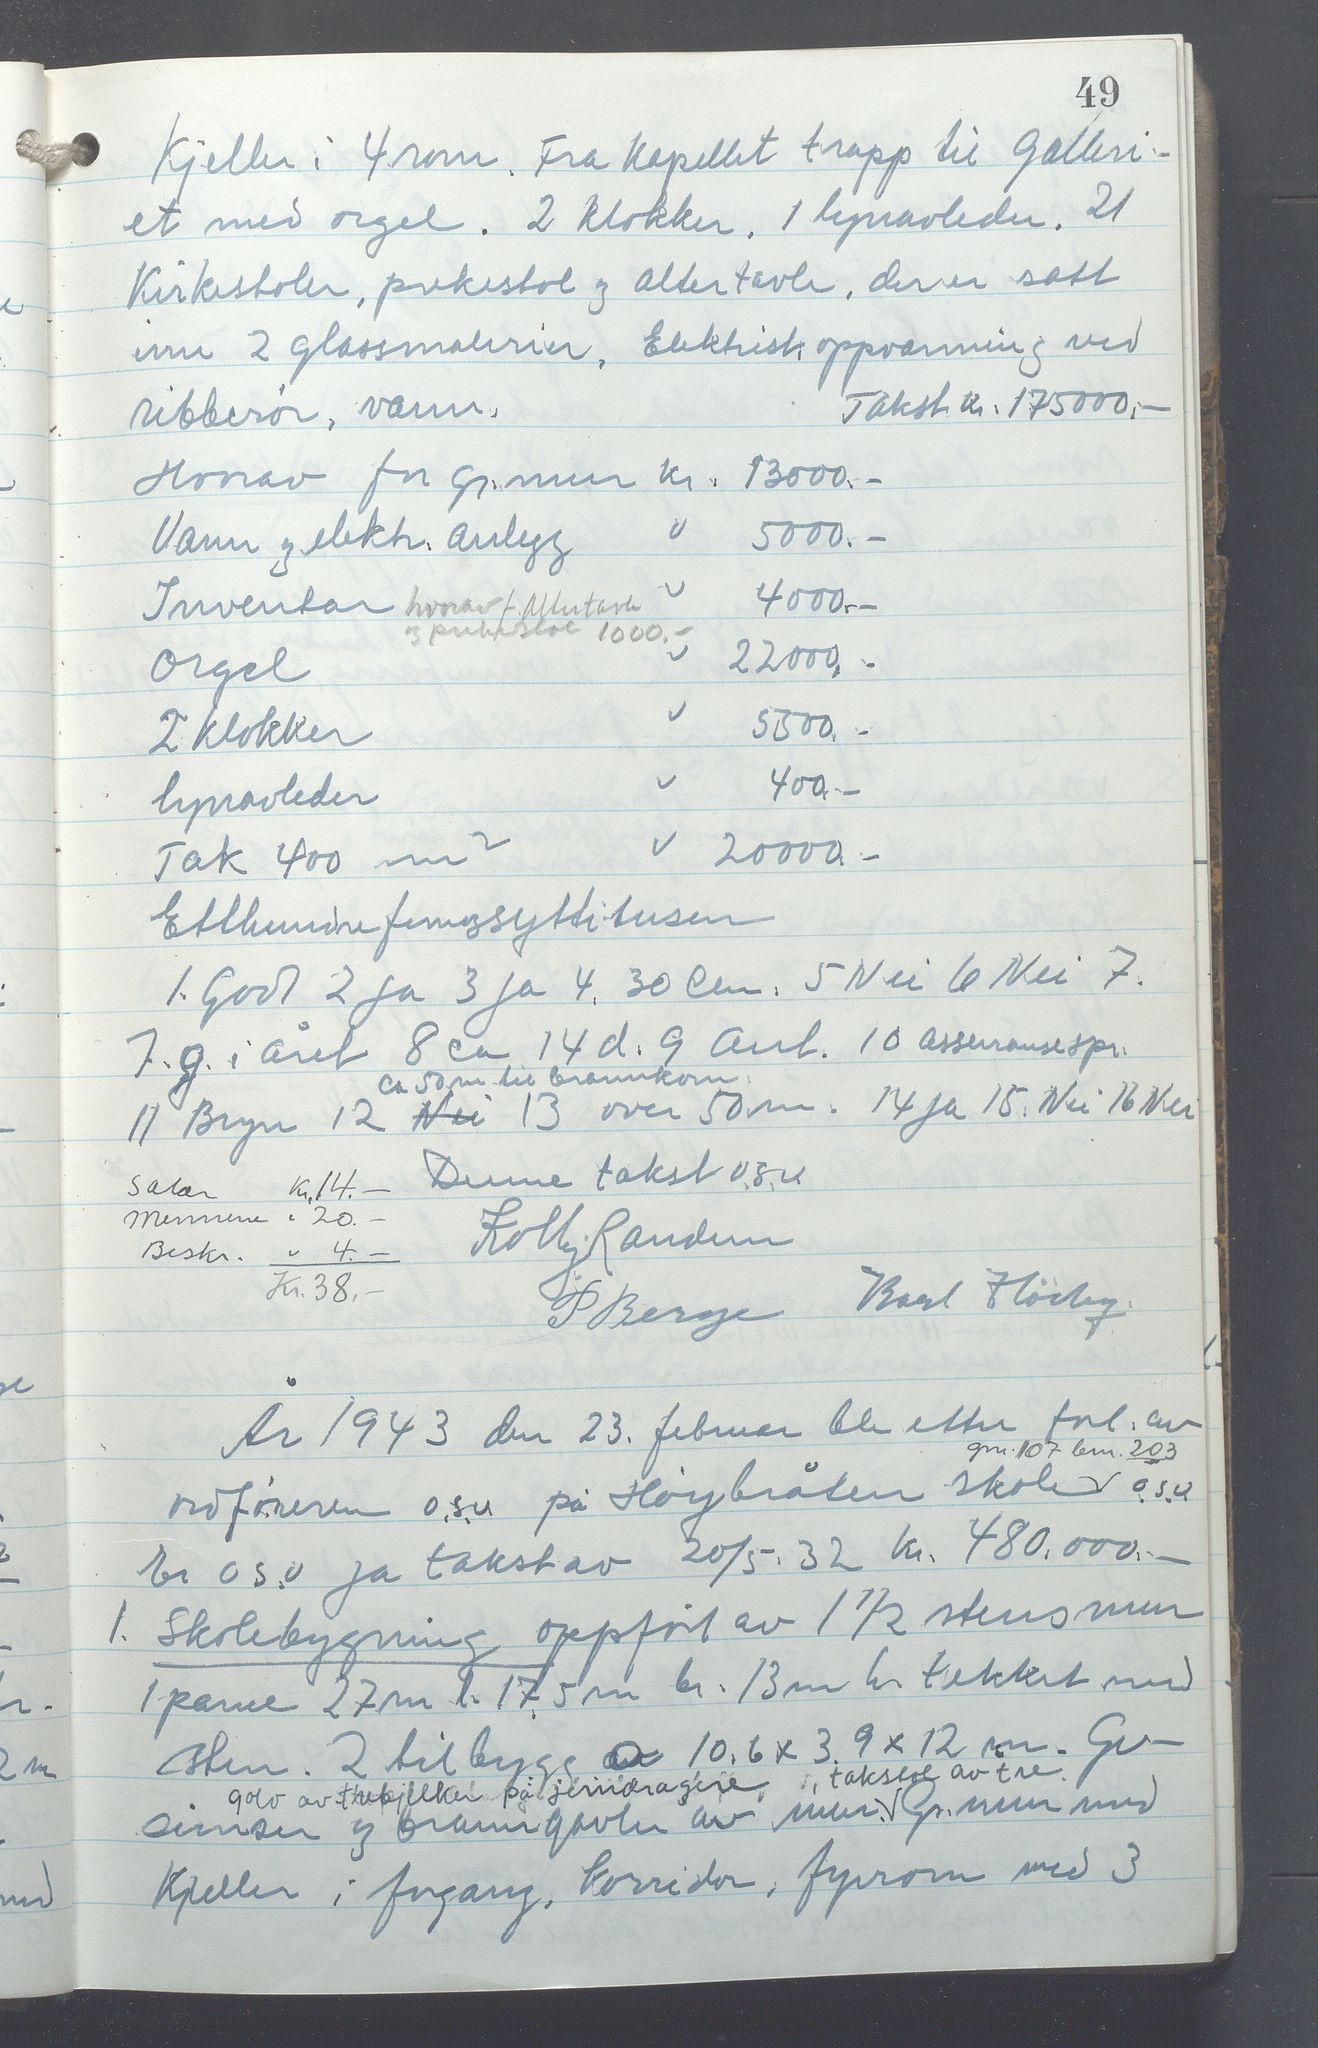 49
Kjeller i 4 rom. Fra kapellet trapp til Galleri-
et med orgel. 2 klokker. 1 lynavleder. 21
Kirkestoler, prekestol og altertavle, der er satt
inn 2 glassmalerier. Elektrisk oppvarming ved
ribberör, vann. Takst kr. 175000.-
Hvorav for gr.mur kr. 13000.-
Vann og elektr. anlegg " 5000.-
Inventar hvorav f. Altertavle " 4000.-
og prekestol 1000.-
Orgel " 22000.-
2 klokker " 5500.-
lynavleder " 400.-
Tak 400 m² " 20000.-
Etthundrefemogsyttitusen
1. God 2 ja 3 ja 4. 30 Cm. 5 Nei 6 Nei 7.
7. g. i året 8 ca 14 d. 9 Aut. 10 assuransespr.
ca 50 m til brannkum.
11 Bryn 12 Nei 13 over 50 m. 14 ja 15. Nei 16 Nei
Salær kr. 14.- Denne takst o.s.v
Mennene " 20.-
Beskr. " 4.-
Kr. 38.-
Kolbj. Randem
P Berge Karl Höiby.
År 1943 den 23. februar ble etter forl. av
gnr. 107 bnr. 203
ordföreren o.s.v på Höybråten skole o.s.v
Er o s.v ja takst av 20/5. 32 kr. 480.000.-
1. Skolebygning oppfört av 1 1/2 stens mur
1 panel 27 m l. 17,5 m br. 13 m h. tekket med
sten. 2 tilbygg a 10.6 x 3.9 x 12 m. Ge-
golv av trebjelker på jerndragere, takstol av tre.
simser og branngavler av mur. Gr. mur med
Kjeller i forgang, korridor, fyrrom med 3